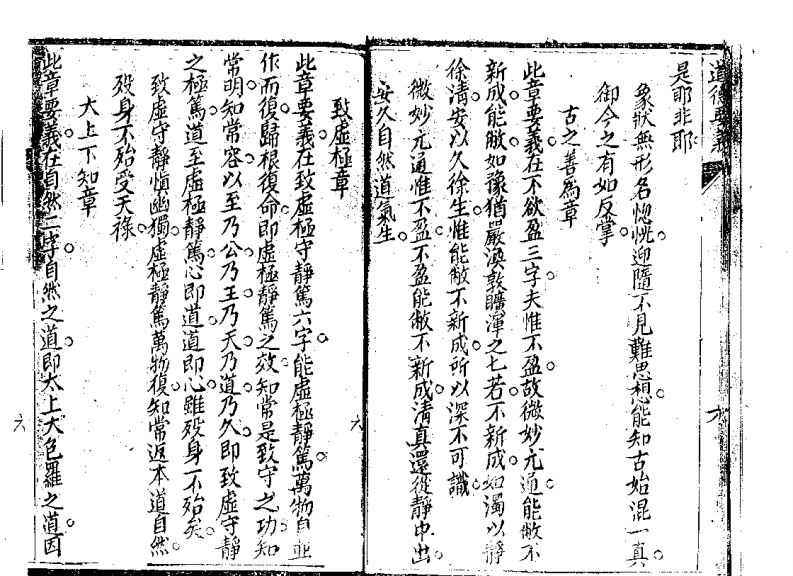 道德要義
六
是耶非耶
象狀無形名惚恍迎隨不見難思想能知古始混一真
御今之有如反掌
古之善為章
此章要義在不欲盈三字夫惟不盈故微妙元通能敝不
新成能敝如豫猶嚴渙敦曠渾之七若不新成如濁以靜
徐清安以久徐生惟能敝不新成所以深不可識
微妙元通惟不盈不盈能敝不新成清真還從靜中出
安久自然道氣生
致虛極章
六
此章要義在致虛極守靜篤六字能虛極靜篤萬物自並
作而復歸根復命即虛極靜篤之效知常是致守之功知
常明知常容以至乃公乃王乃天乃道乃久即致虛守靜
之極篤道至虛極靜篤心即道道即心雖歿身一不殆矣
致虛守靜慎幽獨虛極靜篤萬物復知常返本道自然
歿身不殆受天祿
大上下知章
此章要義在自然二字自然之道即太上大包羅之道因
六